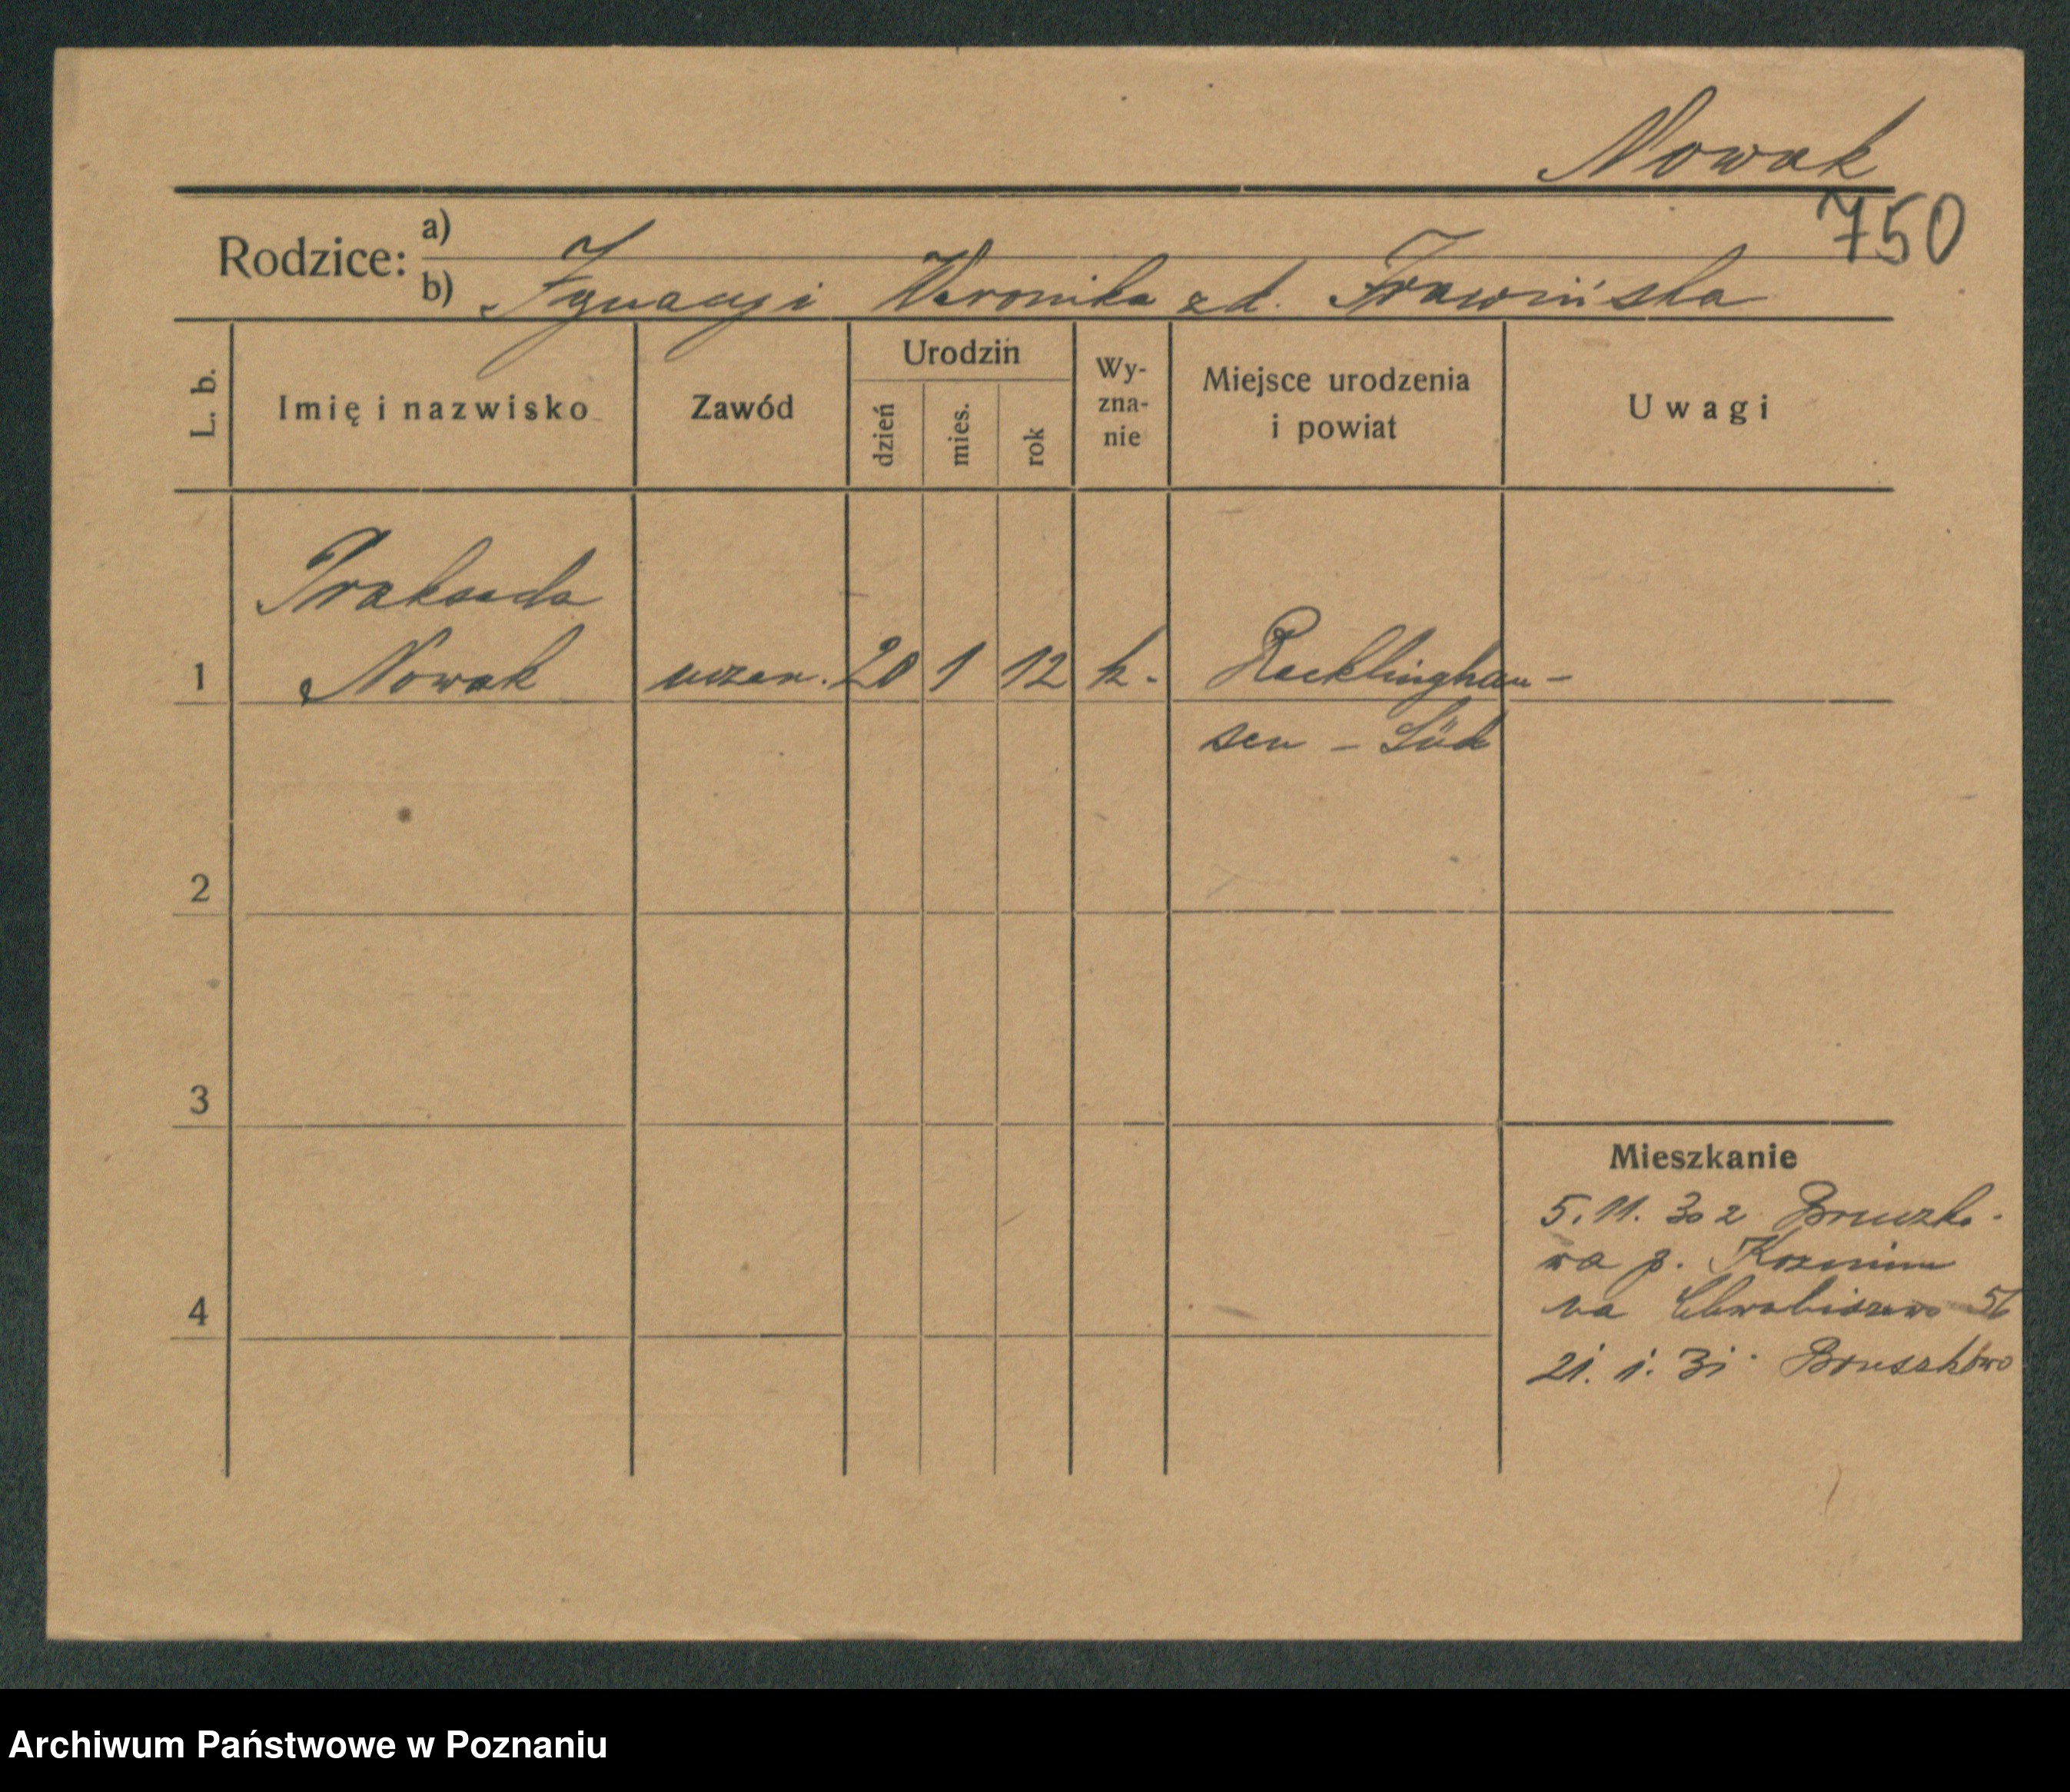 Nowak
750
Rodzice: a)
b) Ignacy i Weronika z d. Trawińska
L. b.
Imię i nazwisko
Zawód
Urodzin
dzień
mies.
rok
Wy-
zna-
nie
Miejsce urodzenia
i powiat
Uwagi
Prakseda
1 Nowak uczen. 20 1 12 k. Recklinghau-
sen - Süd
2
3
Mieszkanie
5.11.30 z Bruczko-
wa p. Kozmin
4 na Chwaliszewo 56
21.1.31. Bruszkowo
Archiwum Państwowe w Poznaniu